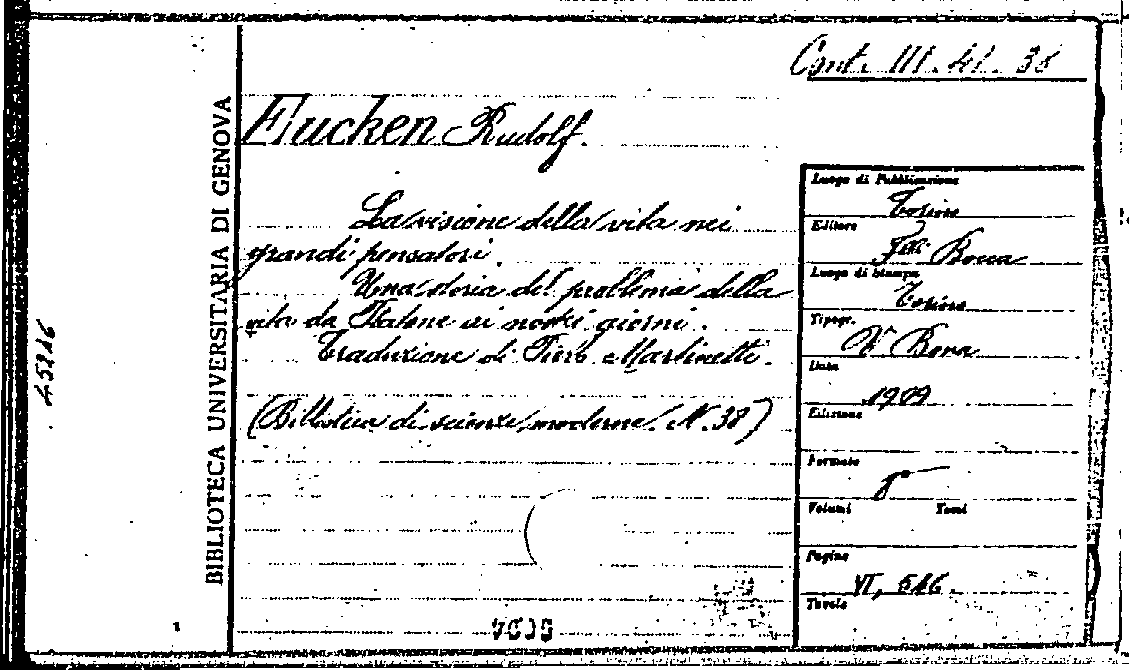 Cont. III. 41. 38
Eucken Rudolf.
La visione della vita nei
grandi pensatori.
Una storia del problema della
vita da Platone ai nostri giorni.
Traduzione di Piero Martinetti.
(Biblioteca di scienze moderne. N. 38)
BIBLIOTECA UNIVERSITARIA DI GENOVA
45216
Luogo di Pubblicazione
Torino
Editore
Flli Bocca
Luogo di Stampa
Torino
Tipogr.
V. Bona
Data
1909
Edizione
Formato
8°
Volumi Tomi
Pagine
VI, 516.
Tavole
1